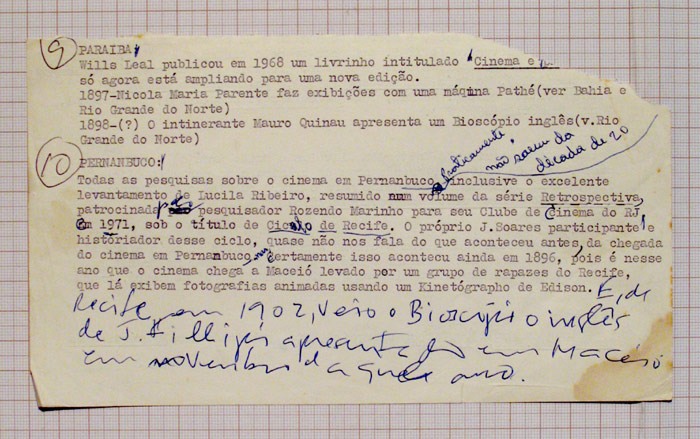 9 PARAIBA
Wills Leal publicou em 1968 um livrinho intitulado Cinema e
só agora está ampliando para uma nova edição.
1897-Nicola Maria Parente faz exibições com uma máquina Pathé(ver Bahia e
Rio Grande do Norte)
1898-(?) O intinerante Mauro Quinau apresenta um Bioscópio inglês(v.Rio
Grande do Norte)
praticamente, não saem da
década de 20
10 PERNANBUCO:
Todas as pesquisas sobre o cinema em Pernanbuco, inclusive o excelente
levantamento de Lucila Ribeiro, resumido num volume da série Retrospectiva,
patrocinada pelo pesquisador Rozendo Marinho para seu Clube de Cinema do RJ
em 1971, sob o título de Ciclo de Recife. O próprio J.Soares participante e
históriador desse ciclo, quase não nos fala do que aconteceu antes, da chegada
do cinema em Pernanbuco, Certamente isso aconteceu ainda em 1896, pois é nesse
ano que o cinema chega a Maceió levado por um grupo de rapazes do Recife,
que lá exibem fotografias animadas usando um Kinetógrapho de Edison. E, de
Recife, em 1902, veio o Bioscópio inglês
de J. Fillipi apresentado em Maceió
em novembro daquele ano.